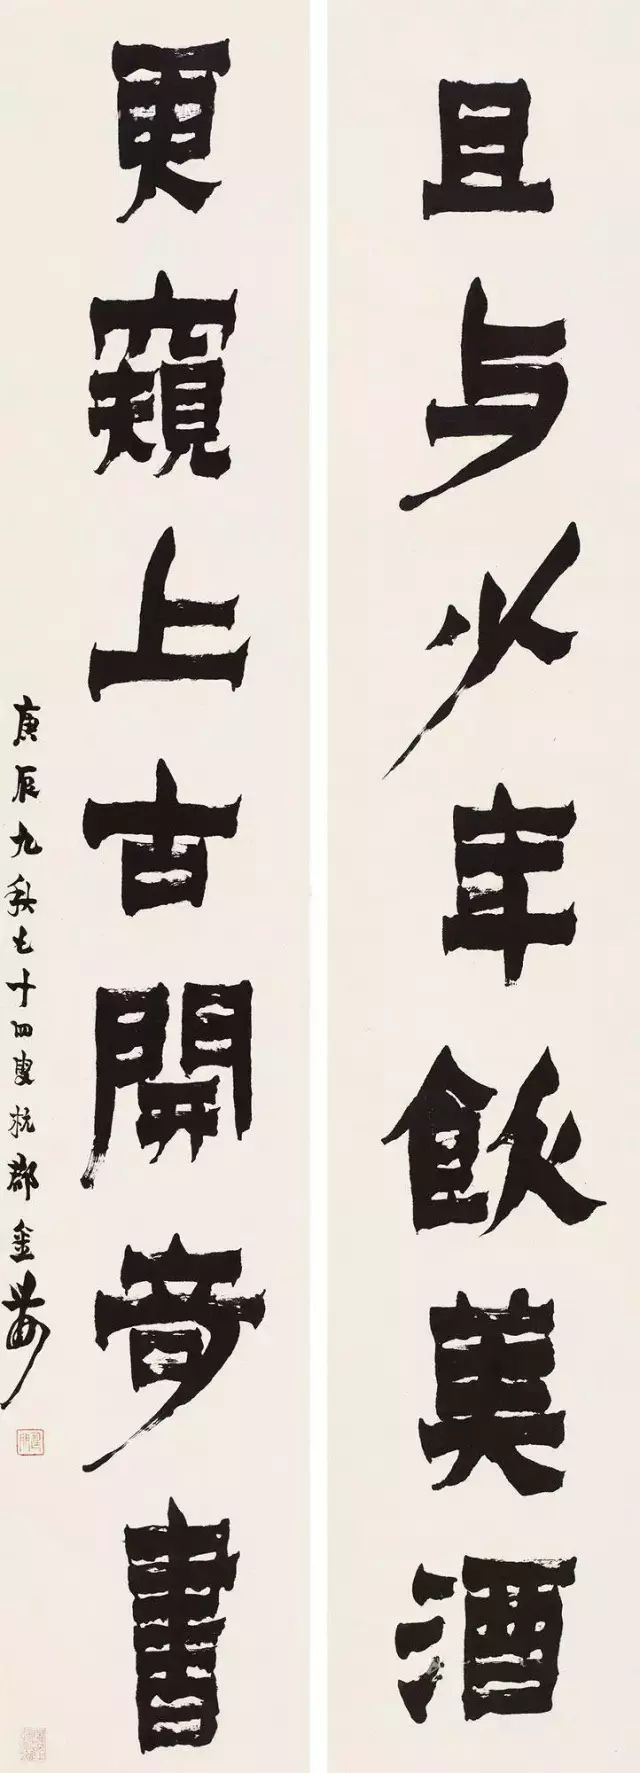 且与少年飲美酒
更窺上古開奇書
庚辰九秋七十四叟杭郡金農